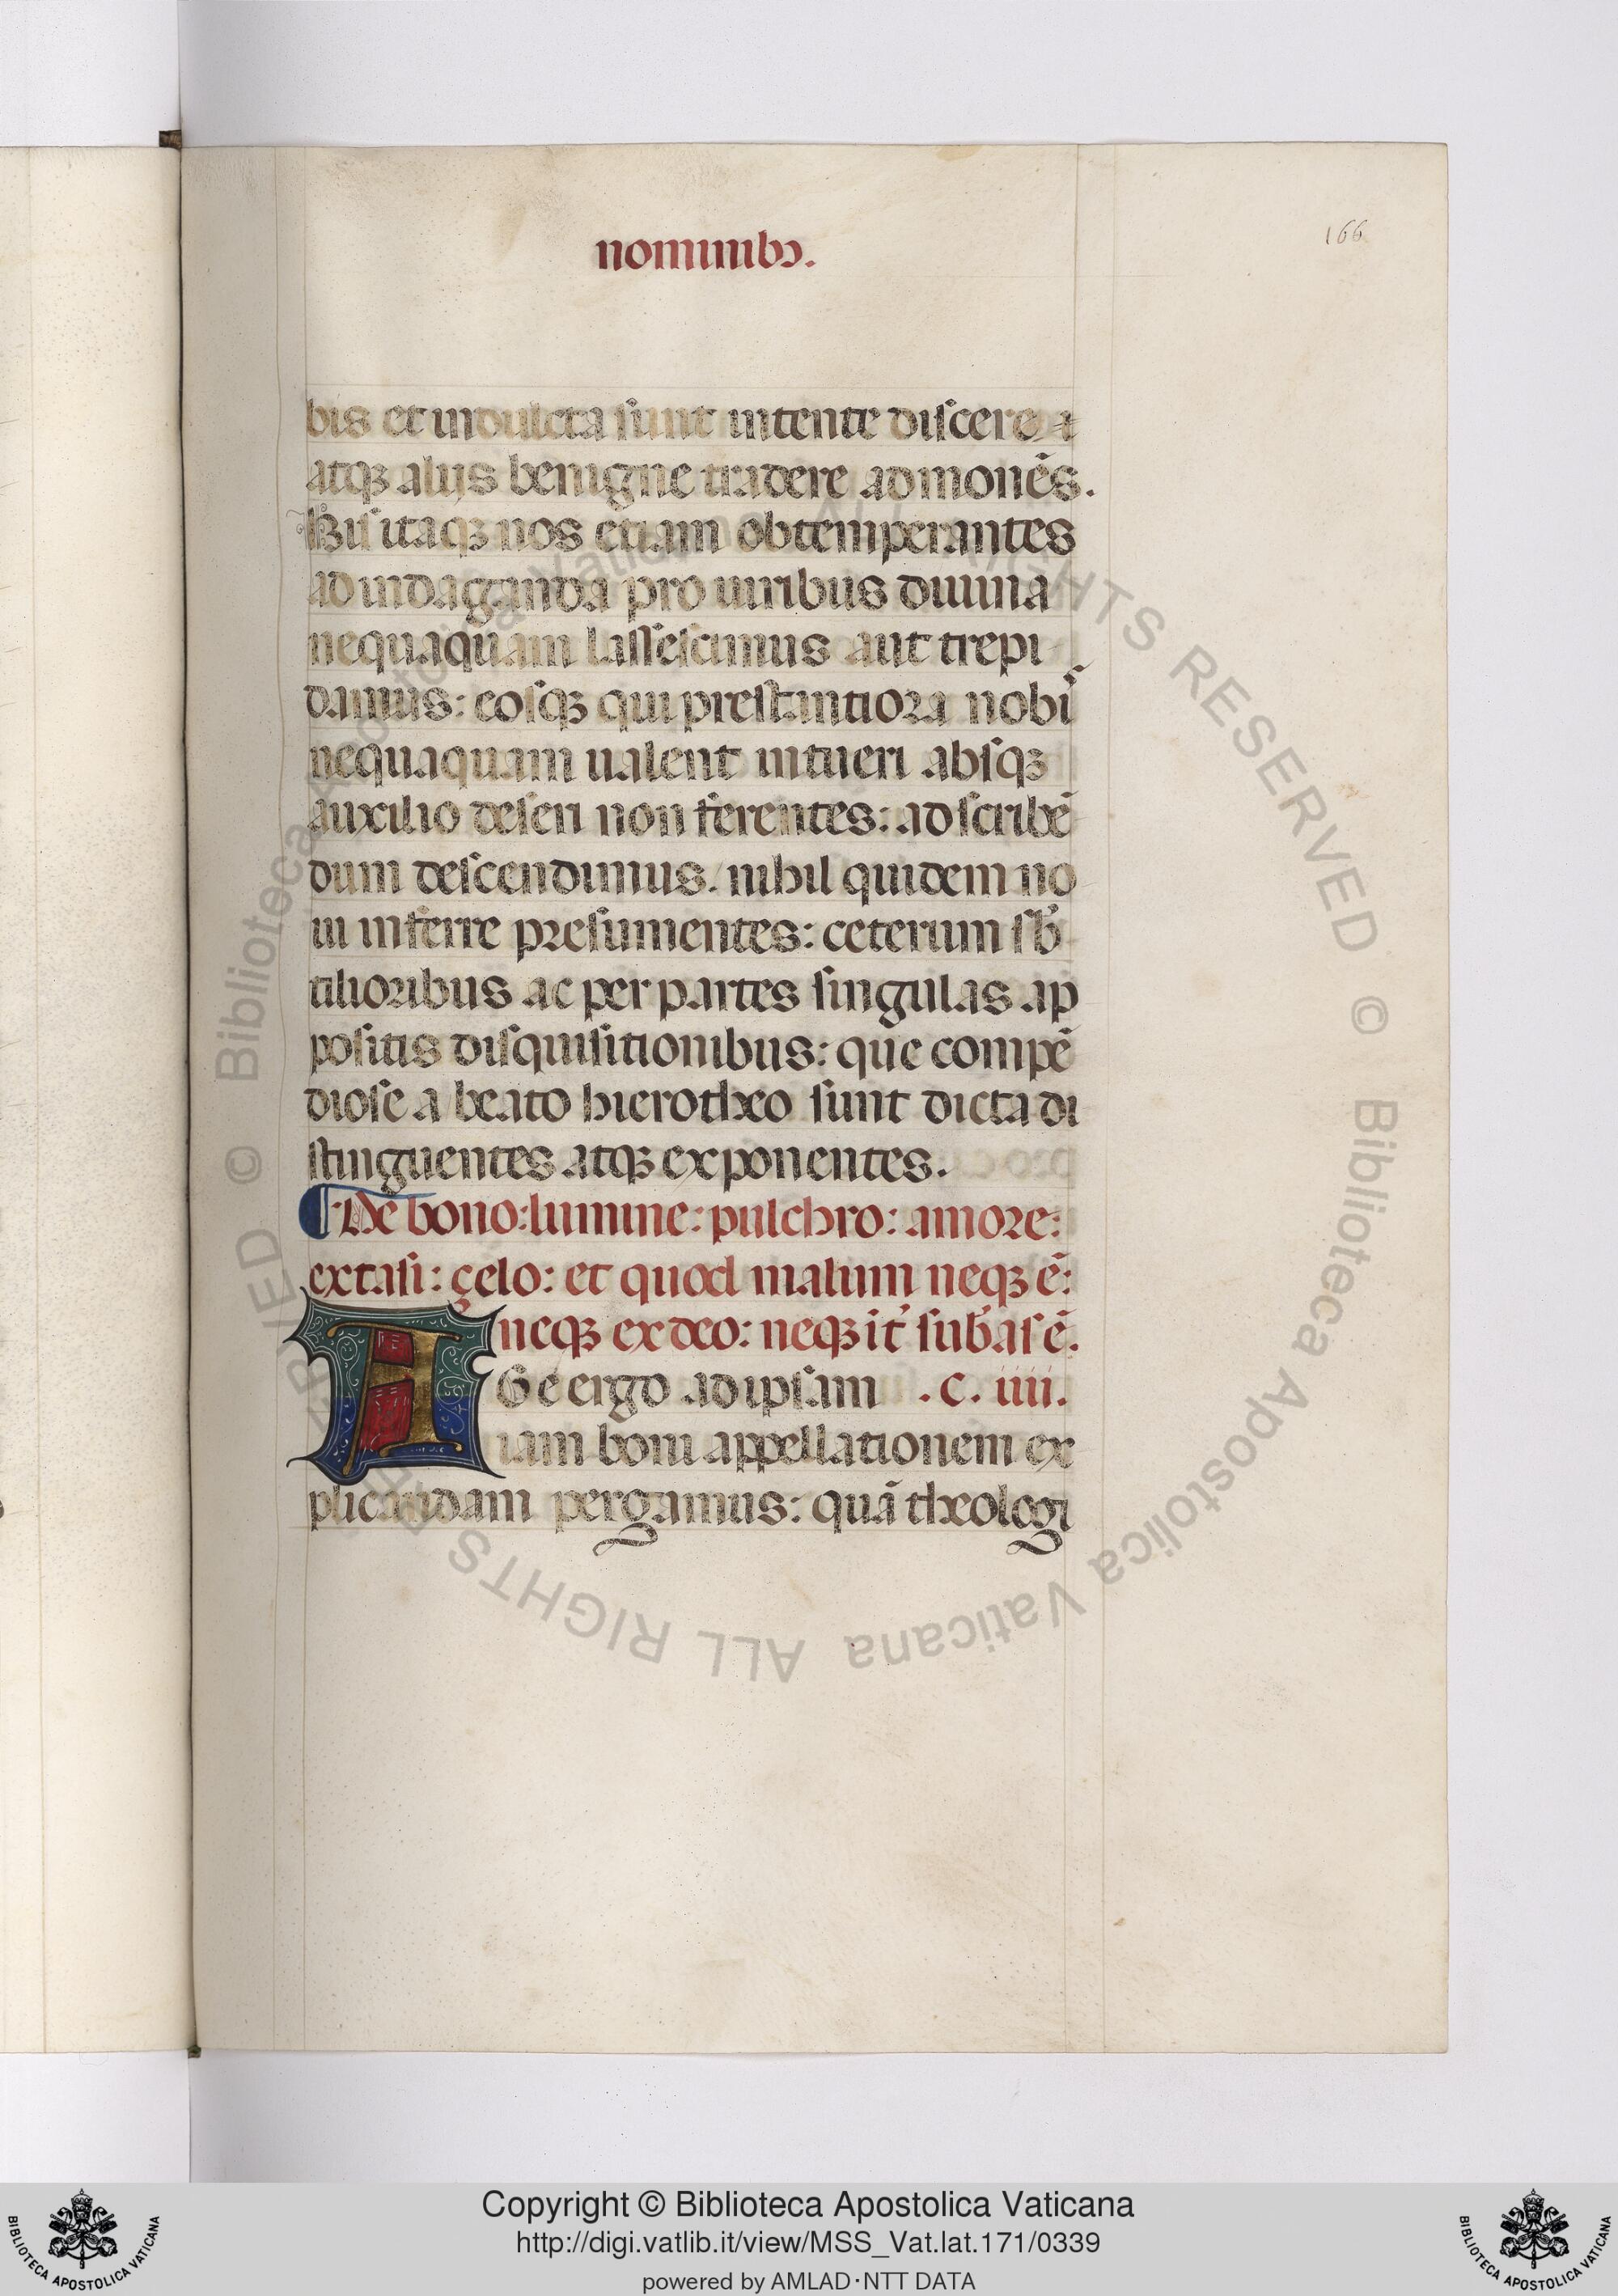 nominibꝫ.
166
bis et indulcta sunt intente discere ⁊
atqꝫ alijs benigne tradere admonēs.
His itaqꝫ nos etiam obtemperantes
ad indaganda pro uiribus diuina
nequaquam lassescimus aut trepi
damus: eosqꝫ qui prestantiora nobis
nequaquam ualent intueri absqꝫ
auxilio deseri non ferentes: ad scribē
dum descendimus. nihil quidem no
ui inferre presumentes: ceterum sb̓
tilioribus ac per partes singulas ap
positis disquisitionibus: que compē
diose a beato hierotheo sunt dicta di
stinguentes atqꝫ exponentes.
¶ De bono: lumine: pulchro: amore:
extasi: çelo: et quod malum neqꝫ ē:
neqꝫ ex deo: neqꝫ it̓ sub̓as ē.
AGe ergo ad ipsam .c. iiii.
iam boni appellationem ex
plicandam pergamus: quā theologi
© Biblioteca Apostolica Vaticana ALL RIGHTS RESERVED © Biblioteca Apostolica Vaticana ALL RIGHTS RESERVED
Copyright © Biblioteca Apostolica Vaticana
http://digi.vatlib.it/view/MSS_Vat.lat.171/0339
powered by AMLAD·NTT DATA
BIBLIOTECA APOSTOLICA VATICANA
BIBLIOTECA APOSTOLICA VATICANA